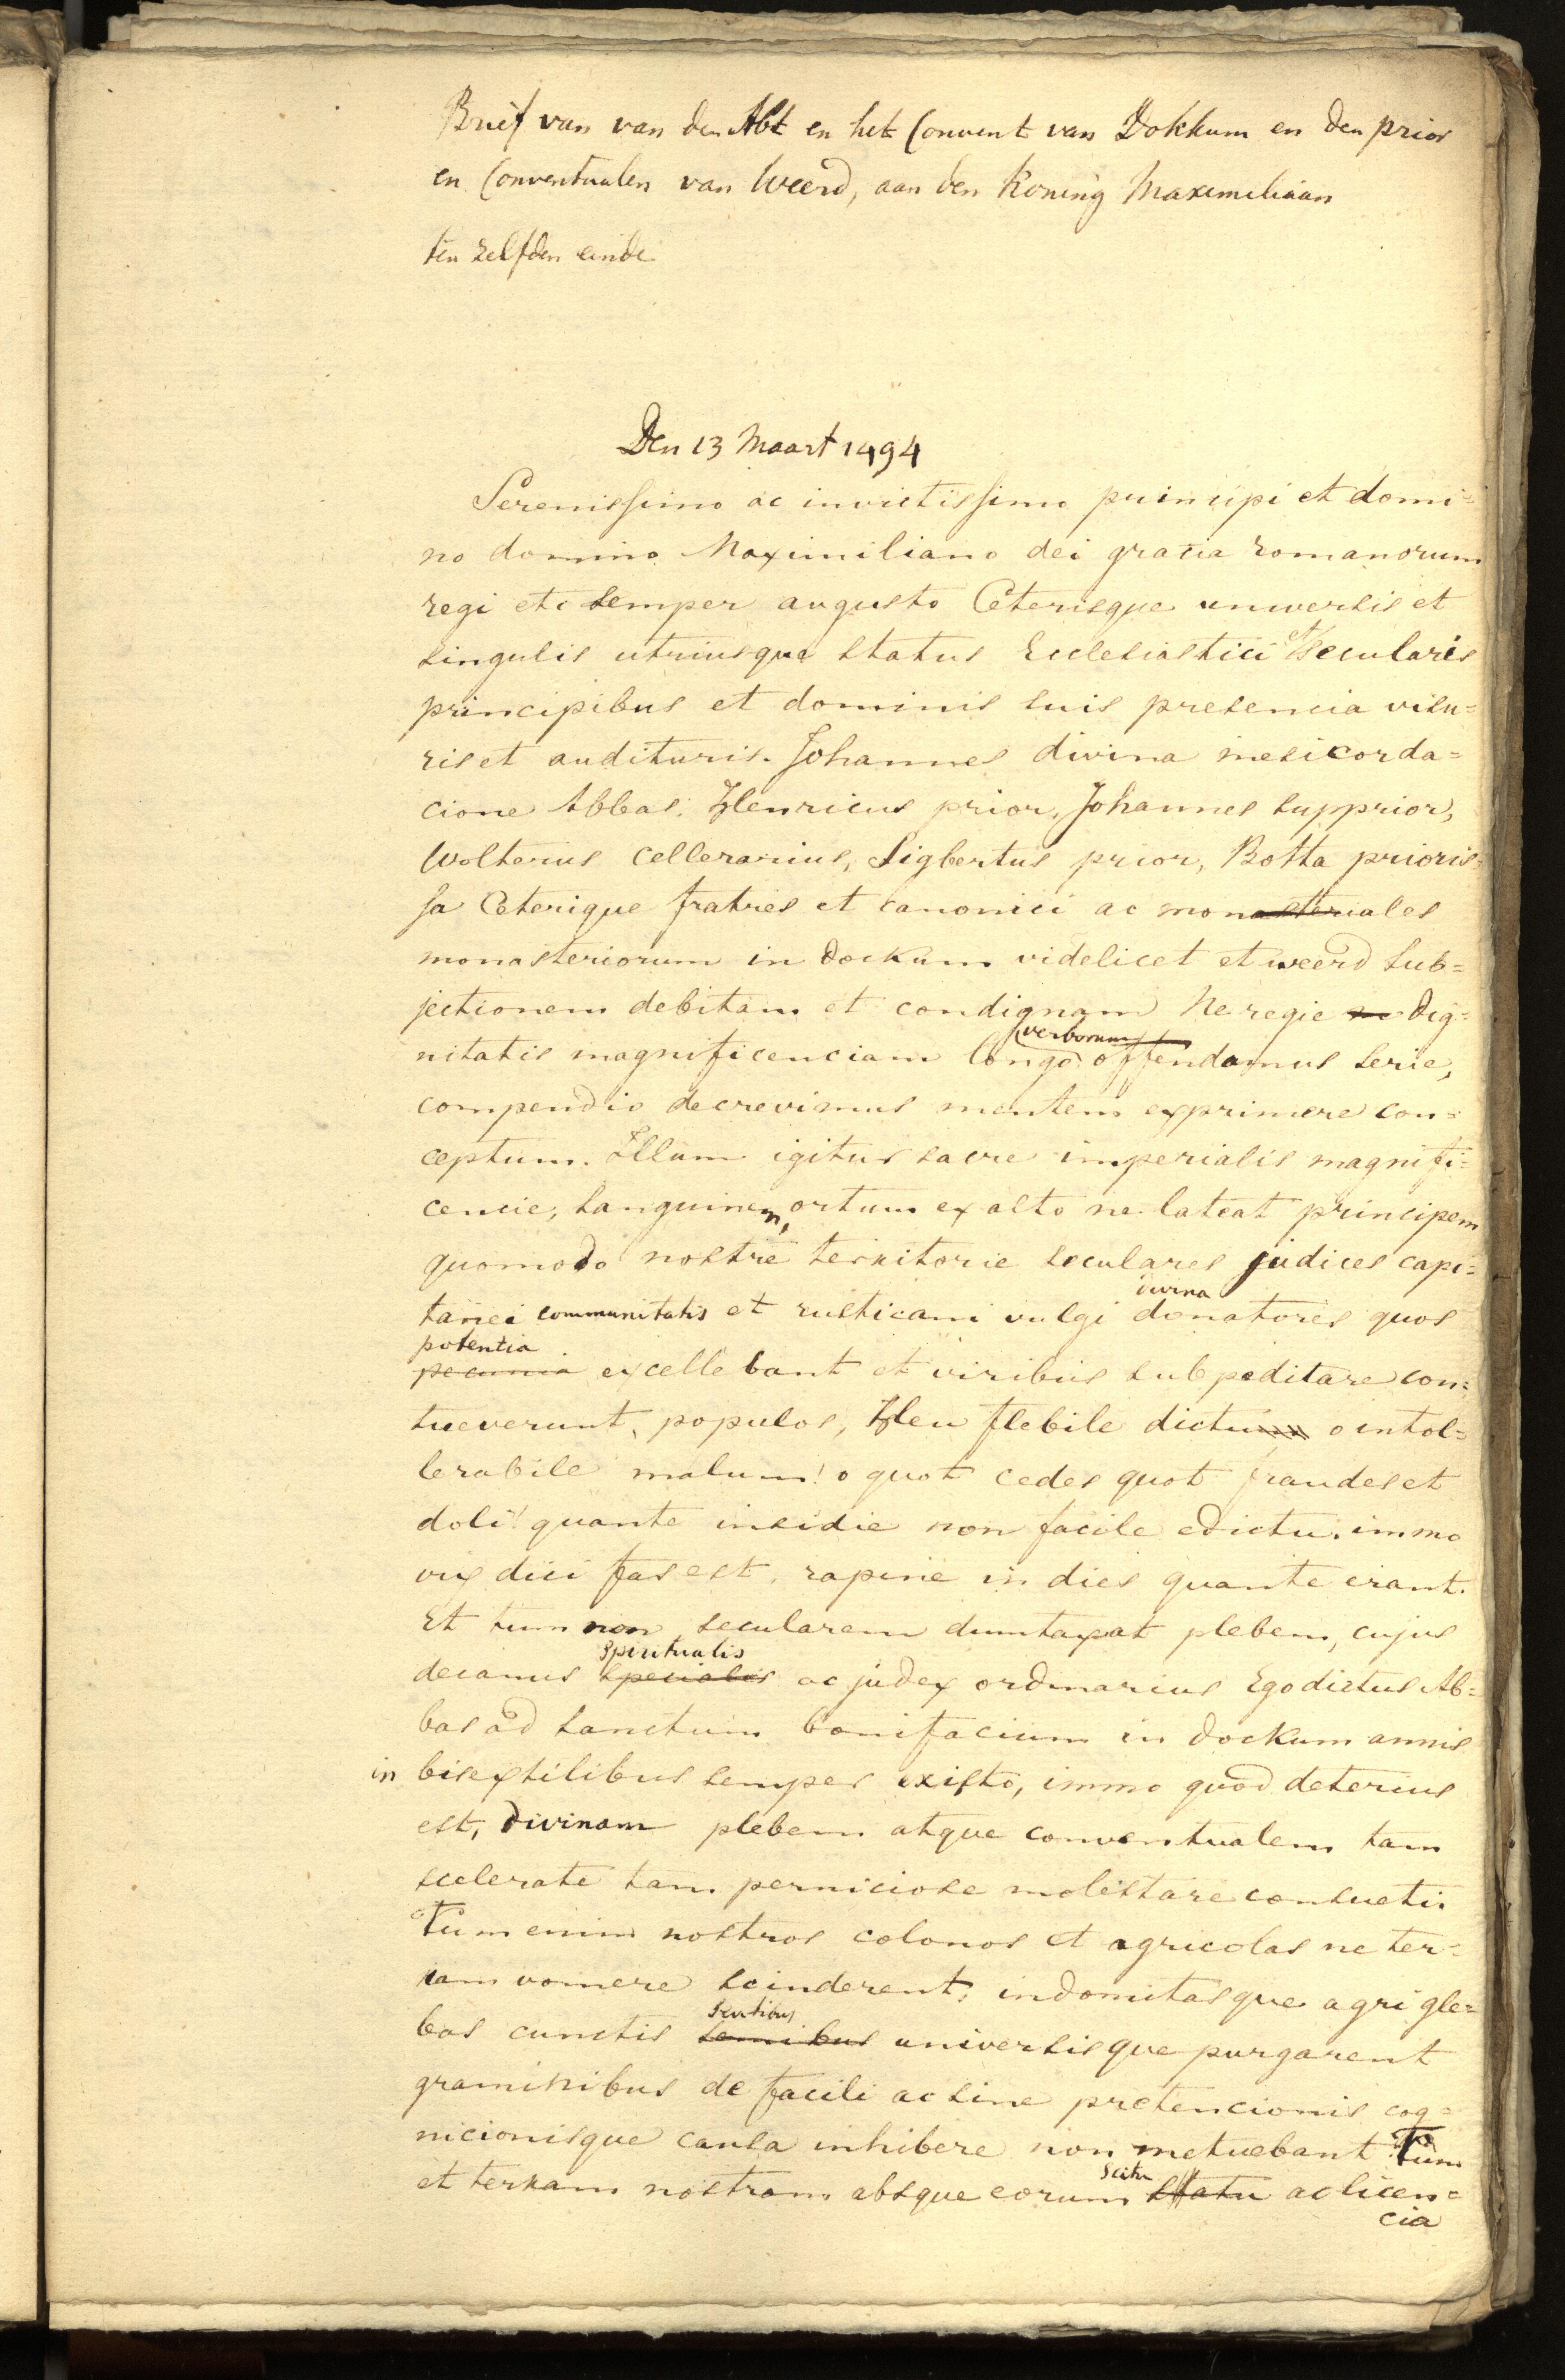 Brief van van den Abt en het Convent van Dokkum en den prior
en Conventualen van Weerd, aan den Koning Maximiliaan
ten zelfden einde
Den 13 Maart 1494
Serenissimo ac invictissimo principi et domi=
no domino Maximiliano dei gracia romanorum
regi etc semper augusto Ceterisque universis et
singulis utriusque status Ecclesiastici et secularis
principibus et dominis suis presencia visu=
ris et audituris. Johannes divina mesicorda=
cione Abbas. Henricus prior, Johannes supprior,
Wolterus cellerarius, Sigbertus prior, Botta prioris=
sa Ceterique fratres et canonici ac monasteriales
monasteriorum in dockum videlicet et weerd sub=
jectionem debitam et condignam Ne regie m dig=
nitatis magnificenciam longa verborum offendamus serie,
compendio decrevimus mentem exprimere con=
ceptum. Illum igitur sacre imperialis magnifi=
cencie, sanguinem, ortum ex alto ne lateat principem
quomodo nostre territorie seculares judices capi=
tanei communitatis et rusticani vulgi iurna donatores quos
potentia
pecunia excellebant et viribus subpeditare con=
sueverunt, populos, Heu flebile dictum o intol=
lerabile malum! o quot cedes quot fraudes et
doli! quante insidie non facile edictu. immo
vix dici fas est, rapine in dies quante erant.
Et tum non secularem dumtaxat plebem, cujus
decanus spiritualis specialis ac judex ordinarius Ego dictus Ab=
bas ad sanctum bonifacium in dockum annis
in bisextilibus semper existo, immo quod deterius
est, divinam plebem atque conventualem tam
scelerate tam perniciose molestare consueti.
Tum enim nostros colonos et agricolas ne ter=
ram vomere scinderent, indomitasque agri gle=
bas cunctis sentibus semibus universisque purgarent
graminibus de facili ac sine pretencionis cog=
nicionisque causa inhibere non metuebant Tum
et terram nostram absque eorum scitu statu ac licen=
cia